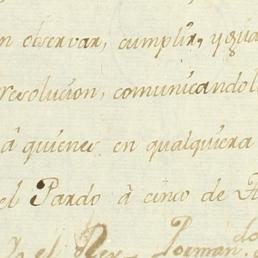 n observar, cumplir, y gua
resolucion, comunicandol
â quienes en qualquiera
el Pardo â cinco de F
el Rey